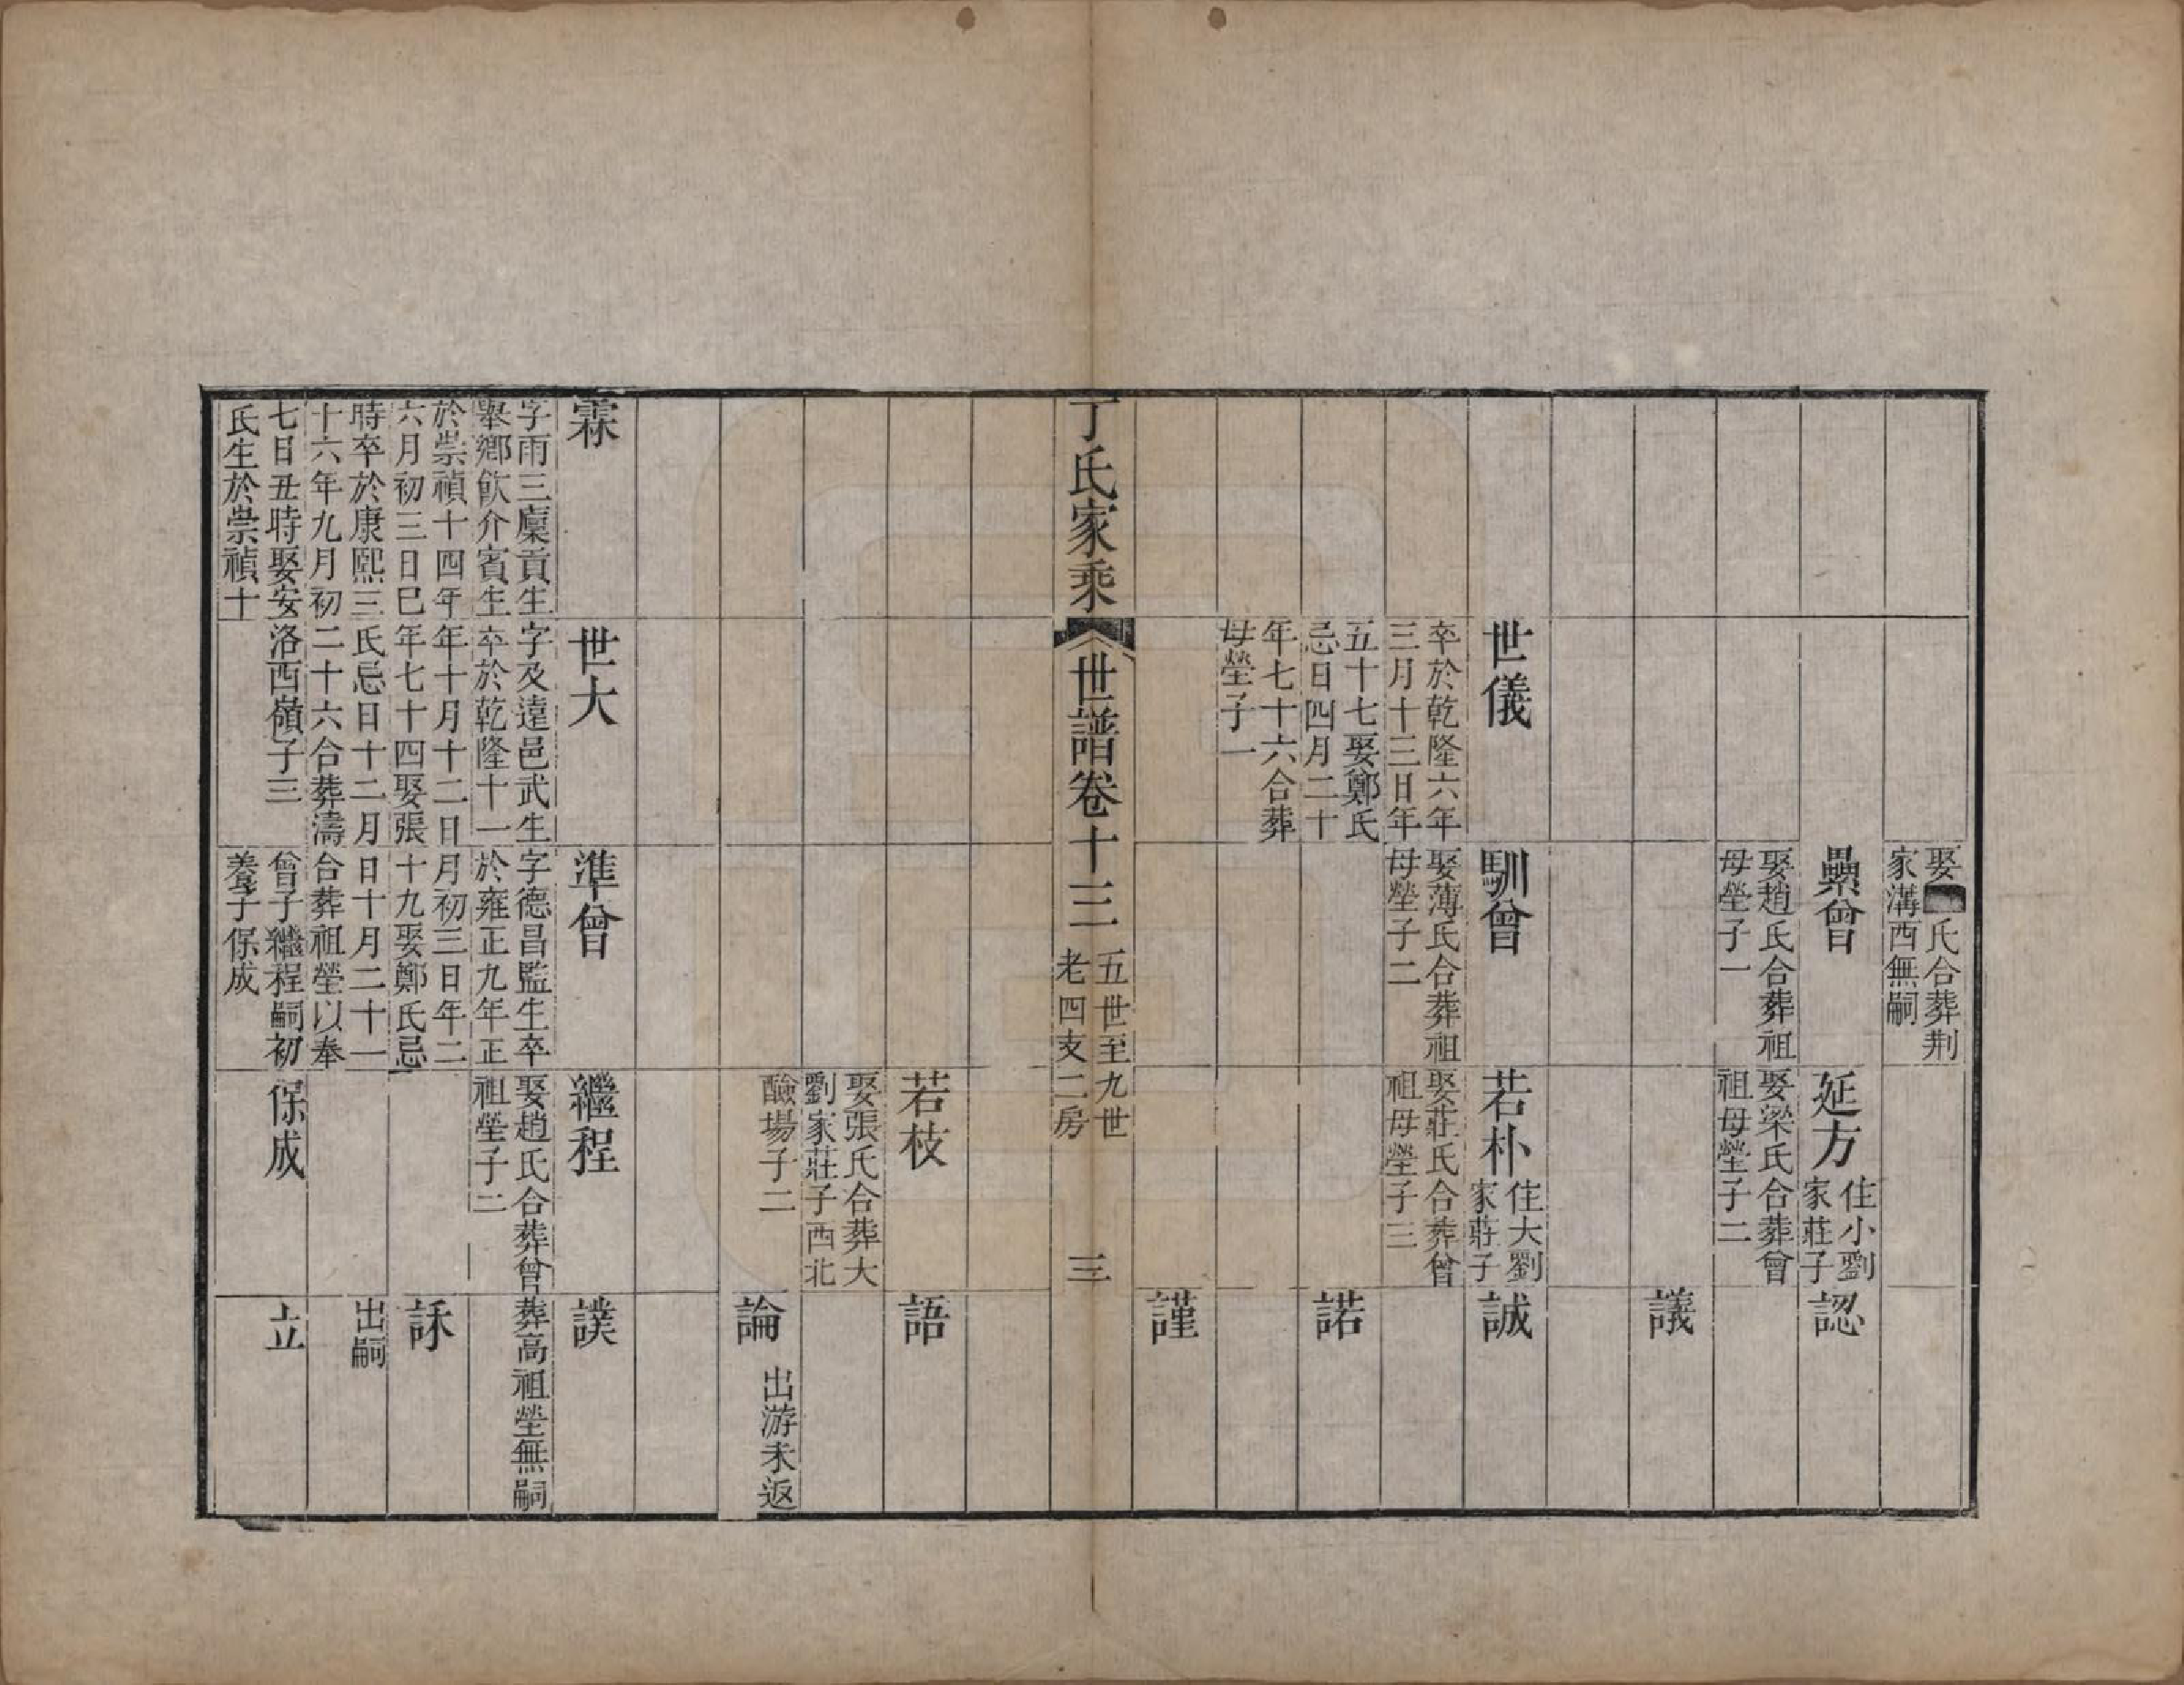 娶■氏合葬荆
家溝西無嗣
纍曾
娶趙氏合葬祖
母塋子一
延方
住小劉
家莊子
娶梁氏合葬曾
祖母塋子二
認
議
世儀
卒於乾隆六年
三月十三日年
五十七娶鄭氏
忌日四月二十
年七十六合葬
母塋子一
馴曾
娶薄氏合葬祖
母塋子二
若朴
住大劉
家莊子
娶莊氏合葬曾
祖母塋子三
誠
諾
謹
丁氏家乘
世譜卷十三
五世至九世
老四支二房
三
若枝
娶張氏合葬大
劉家莊子西北
醶場子二
語
論
出游未返
霖
字雨三廩貢生
舉鄉飲介賓生
於崇禎十四年
六月初三日巳
時卒於康熙三
十六年九月初
七日丑時娶安
氏生於崇禎十
世大
字及遠邑武生
卒於乾隆十一
年十月十二日
年七十四娶張
氏忌日十二月
二十六合葬濤
洛西嶺子三
準曾
字德昌監生卒
於雍正九年正
月初三日年二
十九娶鄭氏忌
日十月二十一
合葬祖塋以奉
曾子繼程嗣初
養子保成
繼程
娶趙氏合葬曾
祖塋子二
保成
謨
葬高祖塋無嗣
訸
出嗣
立